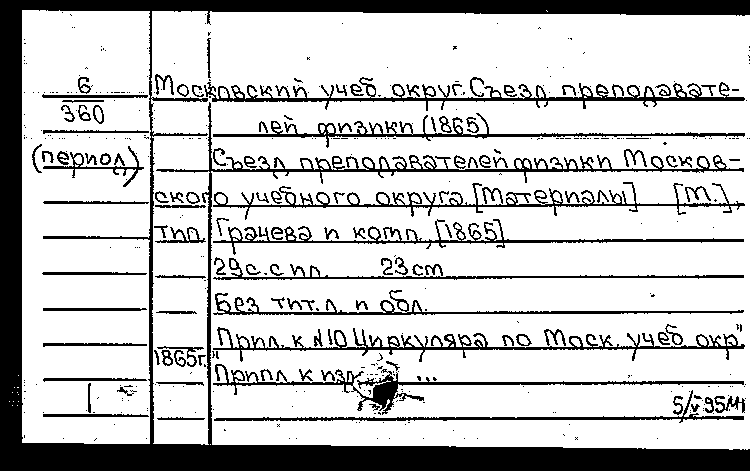 6
360
(период)
Московский учеб. округ. Съезд преподавате-
лей физики (1865)
Съезд преподавателей физики Москов-
ского учебного округа. [Материалы] [М.],
тип. Грачева и комп., [1865]
29 с. с ил. 23 cm
Без тит. л. и обл.
Прил. к №10 Циркуляра по Моск. учеб окр"
1865г."
Припл. к изд ...
5/V 95 М